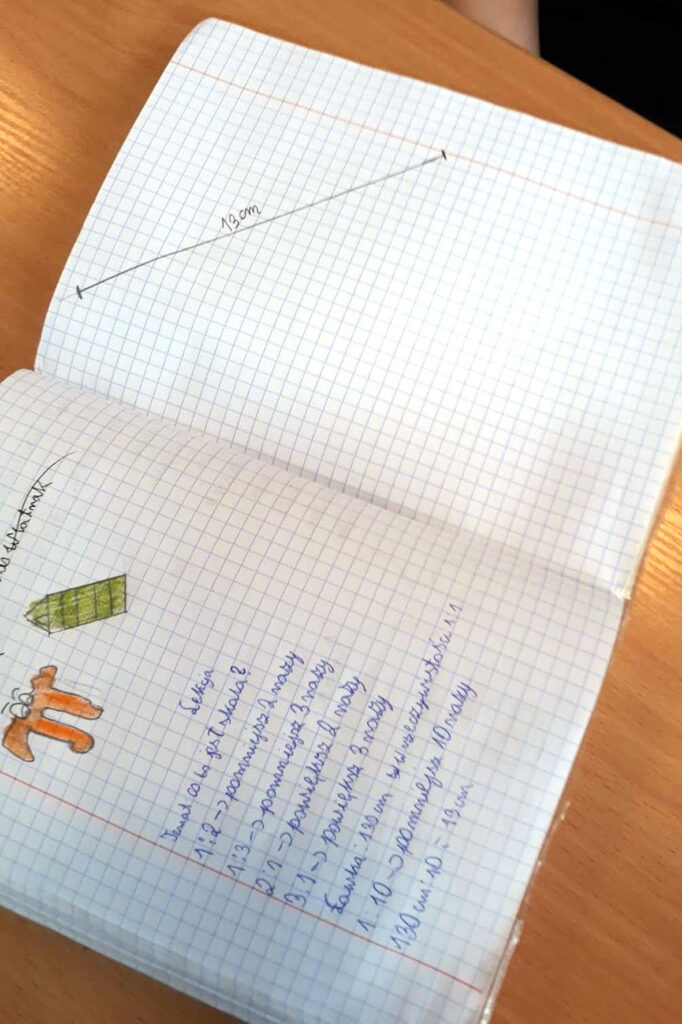 Lekcja
Temat co to jest skala?
1:2 -> pomniejsz 2 razy
1:3 -> pomniejsz 3 razy
2:1 -> powiększ 2 razy
3:1 -> powiększ 3 razy
130cm w rzeczywistości 1:1
1:10 -> pomniejsz 10 razy
130cm:10 = 13cm
13cm